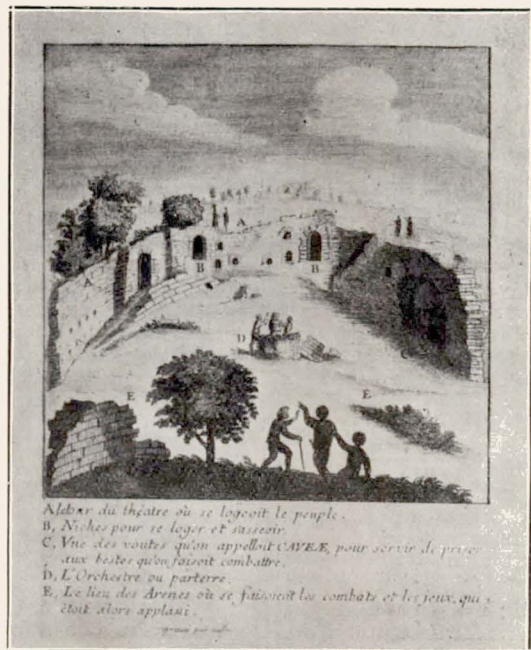 A
A
B
B
C
D
E
E
A le haut du théatre où se logeoit le peuple.
B, Niches pour se loger et s'asseoir.
C, Vne des voutes qu'on appelloit CAVEÆ, pour servir de prison
aux bestes qu'on faisoit combattre.
D, L'Orchestre ou parterre.
E, Le lieu des Arenes où se faisoient les combats et les jeux, qui
étoit alors applani.